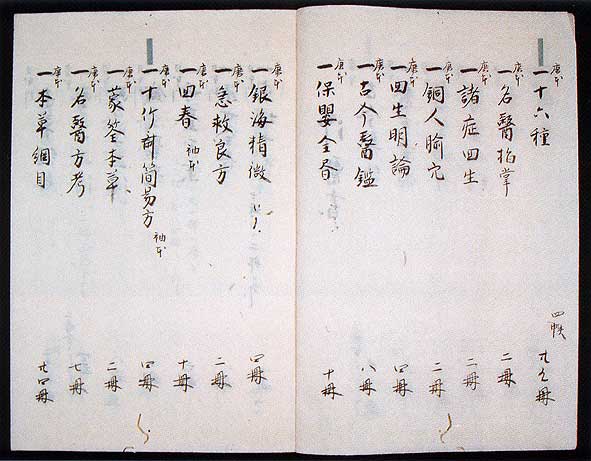 唐本 一十六種 四帙 廿五冊
唐本 一名醫指掌 二冊
唐本 一諸症回生 二冊
唐本 一銅人腧穴 二冊
唐本 一回生明論 四冊
唐本 一古今醫鑑 八冊
唐本 一保嬰全書 十冊
唐本 一銀海精微 四冊
唐本 一急救良方 二冊
唐本 一回春 袖本 十冊
唐本 一十竹齋簡易方 袖本 四冊
唐本 一蒙筌本草 二冊
唐本 一名醫方考 七冊
唐本 一本草綱目 廿四冊